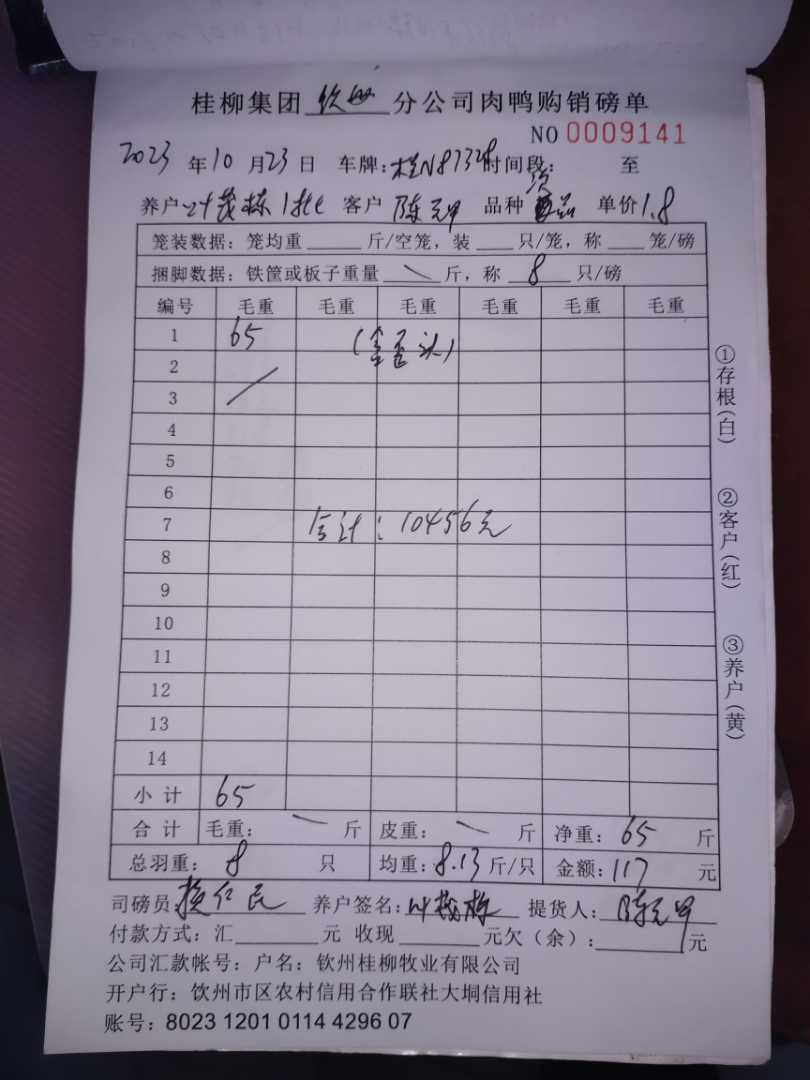 桂柳集团 钦州 分公司肉鸭购销磅单
NO 0009141
2023 年 10 月 23 日 车牌: 桂N87328 时间段: 至
养户 叶茂栋 1批 客户 陈元甲 品种 次品 单价 1.8
笼装数据: 笼均重 斤/空笼, 装 只/笼, 称 笼/磅
捆脚数据: 铁筐或板子重量 \ 斤, 称 8 只/磅
编号 毛重 毛重 毛重 毛重 毛重 毛重
1 65 (歪头)
2
3
4
5
6
7 合计: 10456元
8
9
10
11
12
13
14
小计 65
合计 毛重: \ 斤 皮重: \ 斤 净重: 65 斤
总羽重: 8 只 均重: 8.13 斤/只 金额: 117 元
司磅员: 仁民 养户签名: 叶茂栋 提货人: 陈元甲
付款方式: 汇 元 收现 元欠(余): 元
公司汇款帐号: 户名: 钦州桂柳牧业有限公司
开户行: 饮州市区农村信用合作联社大垌信用社
账号: 8023 1201 0114 4296 07
①存根(白)
②客户(红)
③养户(黄)